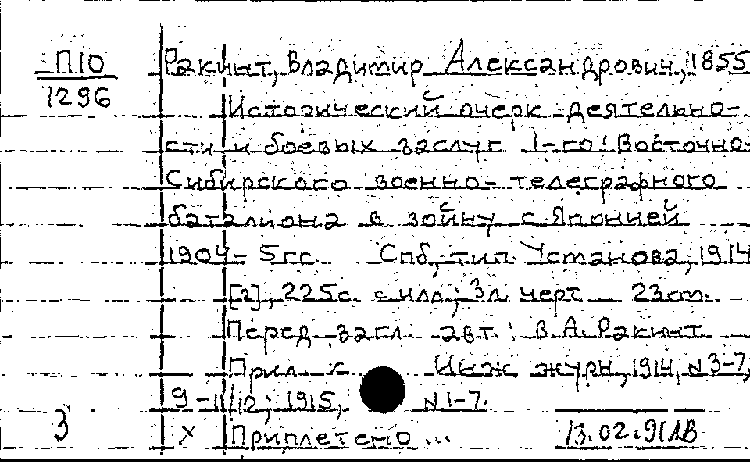 П10
1296
Ракинт, Владимир Александрович, 1855
Исторический очерк деятельно-
сти и боевых заслуг 1-го Восточно-
Сибирского военно-телеграфного
баталиона в войну с Японией
1904-5гг. Спб, тип. Усманова, 1914
[2], 225с. с илл.; 3л. черт. 23см.
Перед загл. авт: В.А. Ракинт
Прил. к Инж. журн, 1914, N3-7,
9-11/12; 1915, N1-7.
3 х Приплетено... 13.02.91 ЛВ